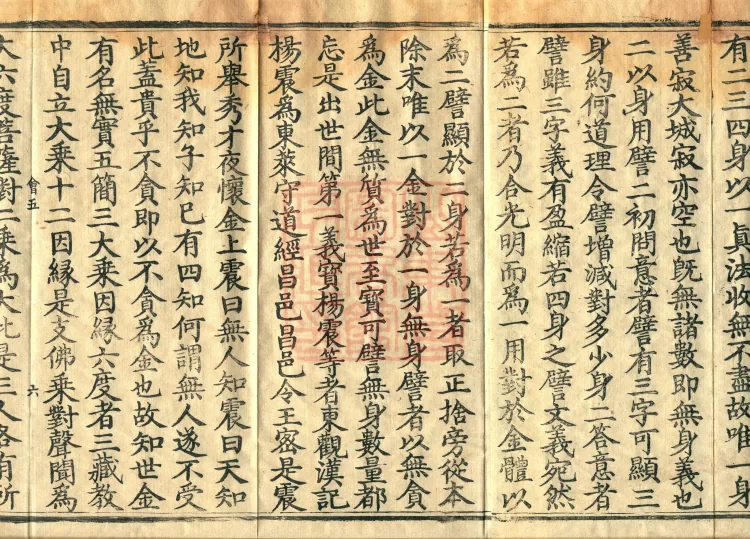 有二三四身以一真法收無不盡故唯一身
善寂大城寂亦空也既無諸數即無身義也
二以身用譬二初問意者譬有三字可顯三
身約何道理令譬增減對多少身二答意者
譬雖三字義有盈縮若四身之譬文義宛然
若為二者乃合光明而爲一用對於金體以
爲二譬顯於二身若爲一者取正捨旁從本
除末唯以一金對於一身無身譬者以無貪
爲金此金無質為世至寶可譬無身數量都
忘是出世間第一義寶楊震等者東觀漢記
楊震爲東萊守道經昌邑昌邑令王密是震
所舉秀才夜懷金上震曰無人知震曰天知
地知我知子知巳有四知何謂無人遂不受
此蓋貴乎不貪即以不貪爲金也故知世金
有名無實五簡三大乘因緣六度者三藏教
中自立大乘十二因緣是支佛乘對聲聞爲
會五 六
大六度菩薩對二乘爲大此是三人各有所